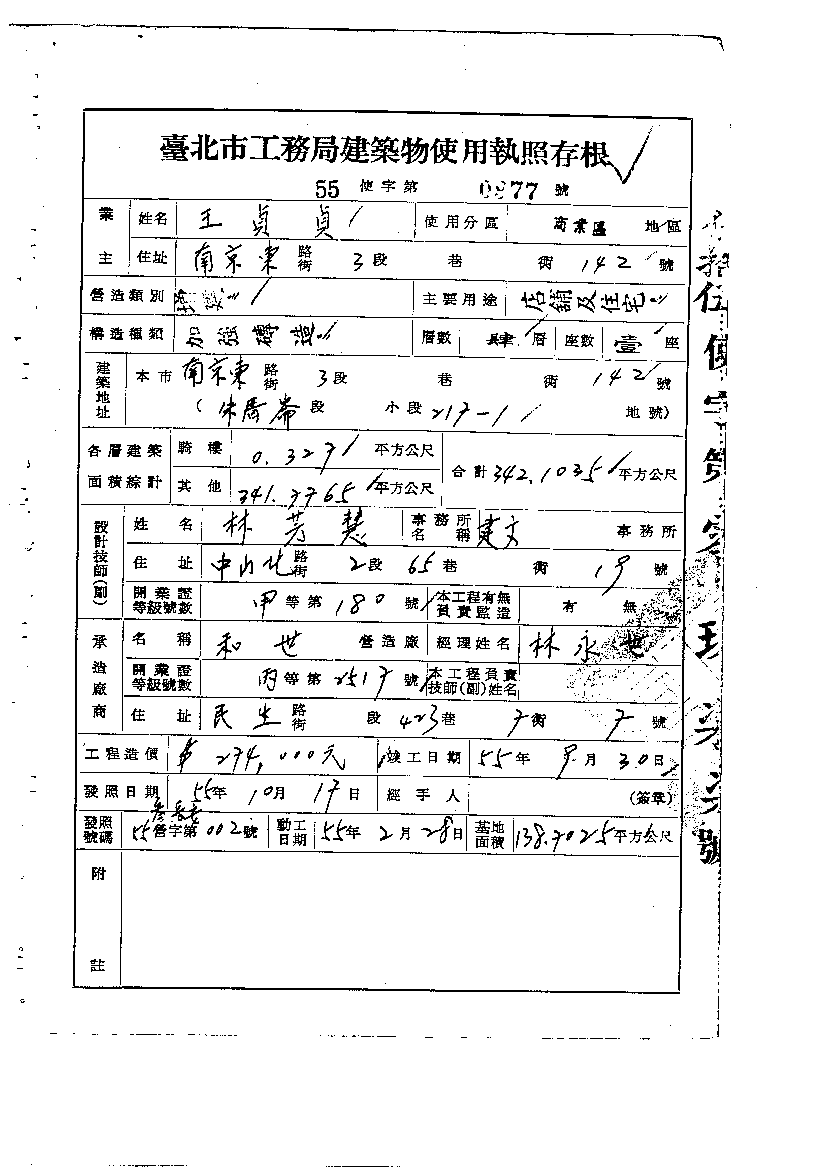 臺北市工務局建築物使用執照存根
55 使字第 0877 號
業主 姓名 王貞貞 使用分區 商業區 地區
住址 南京東 路街 3段 巷 衖 142 號
營造類別 主要用途 店舖及住宅
構造種類 加強磚造 層數 肆 層 座數 壹 座
建築地址 本市 南京東 路街 3段 巷 衖 142 號
(朱厝崙段 小段 217-1 地號)
各層建築面積綜計 騎樓 0.327 平方公尺 合計 342.1035 平方公尺
其他 341.7765 平方公尺
設計技師(副) 姓名 林芳慧 事務所名稱 建文 事務所
住址 中山北 路街 2段 65巷 衖 19 號
開業證等級號數 甲等第 180 號 本工程有無負責監造 有 無
承造廠商 名稱 和世 營造廠 經理姓名 林永世
開業證等級號數 丙等第 2517 號 本工程負責技師(副)姓名
住址 民生 路街 段 423巷 7衖 7 號
工程造價 $274,000元 竣工日期 55年 9月 30日
發照日期 55年 10月 17日 經手人 (簽章)
發照號碼 55營字第 002號 動工日期 55年 2月 28日 基地面積 138.7025平方公尺
附註